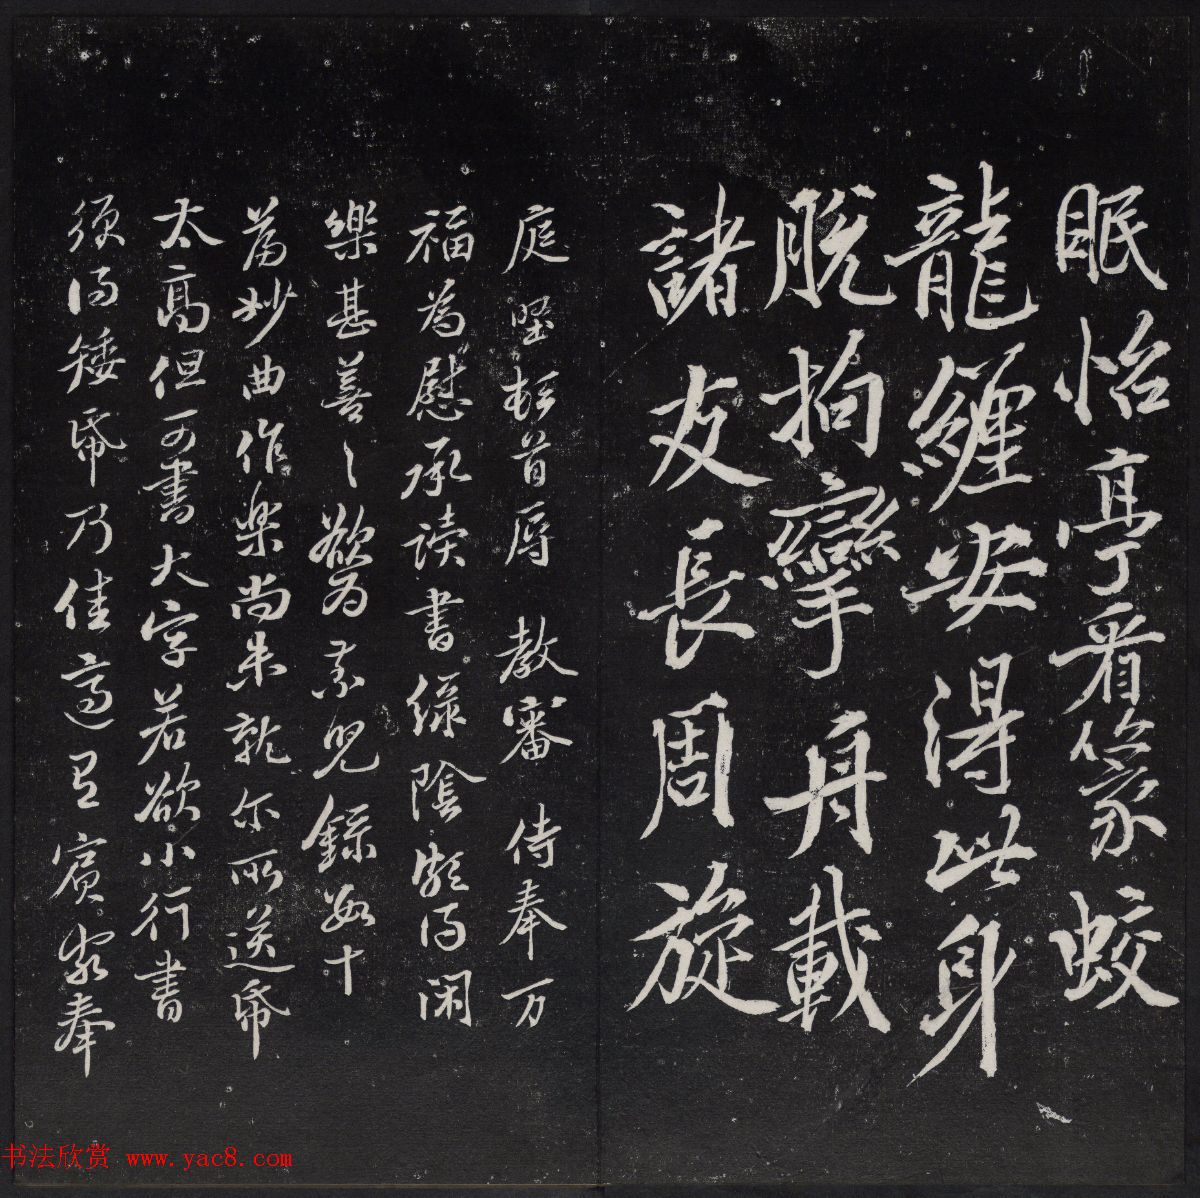 眠怡亭看篆蛟
龍纏安得此身
脫拘攣舟載
諸友長周旋
庭堅頓首辱教審侍奉万
福為慰承讀書綠陰頗得閑
樂甚善〻欲為素兒錄數十
篇妙曲作樂尚未就尔所送紙
太高但可書大字若欲小行書
須得矮紙乃佳適有賓客奉
书法欣赏 www.yac8.com